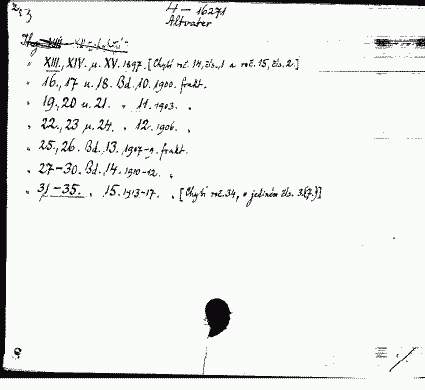 4 - 16271
Altvater
" XIII., XIV. u. XV. 1897. [Chybí roč. 14, čís. 1 a roč. 15, čís. 2.]
" 16., 17 u. 18. Bd. 10. 1900. frakt.
" 19., 20 u. 21. " 11. 1903. "
" 22., 23 u. 24. " 12. 1906. "
" 25., 26. Bd. 13. 1907-9. frakt.
" 27-30. Bd. 14. 1910-12. "
" 31-35. " 15. 1913-17. " [Chybí roč. 34, jediném čís.]